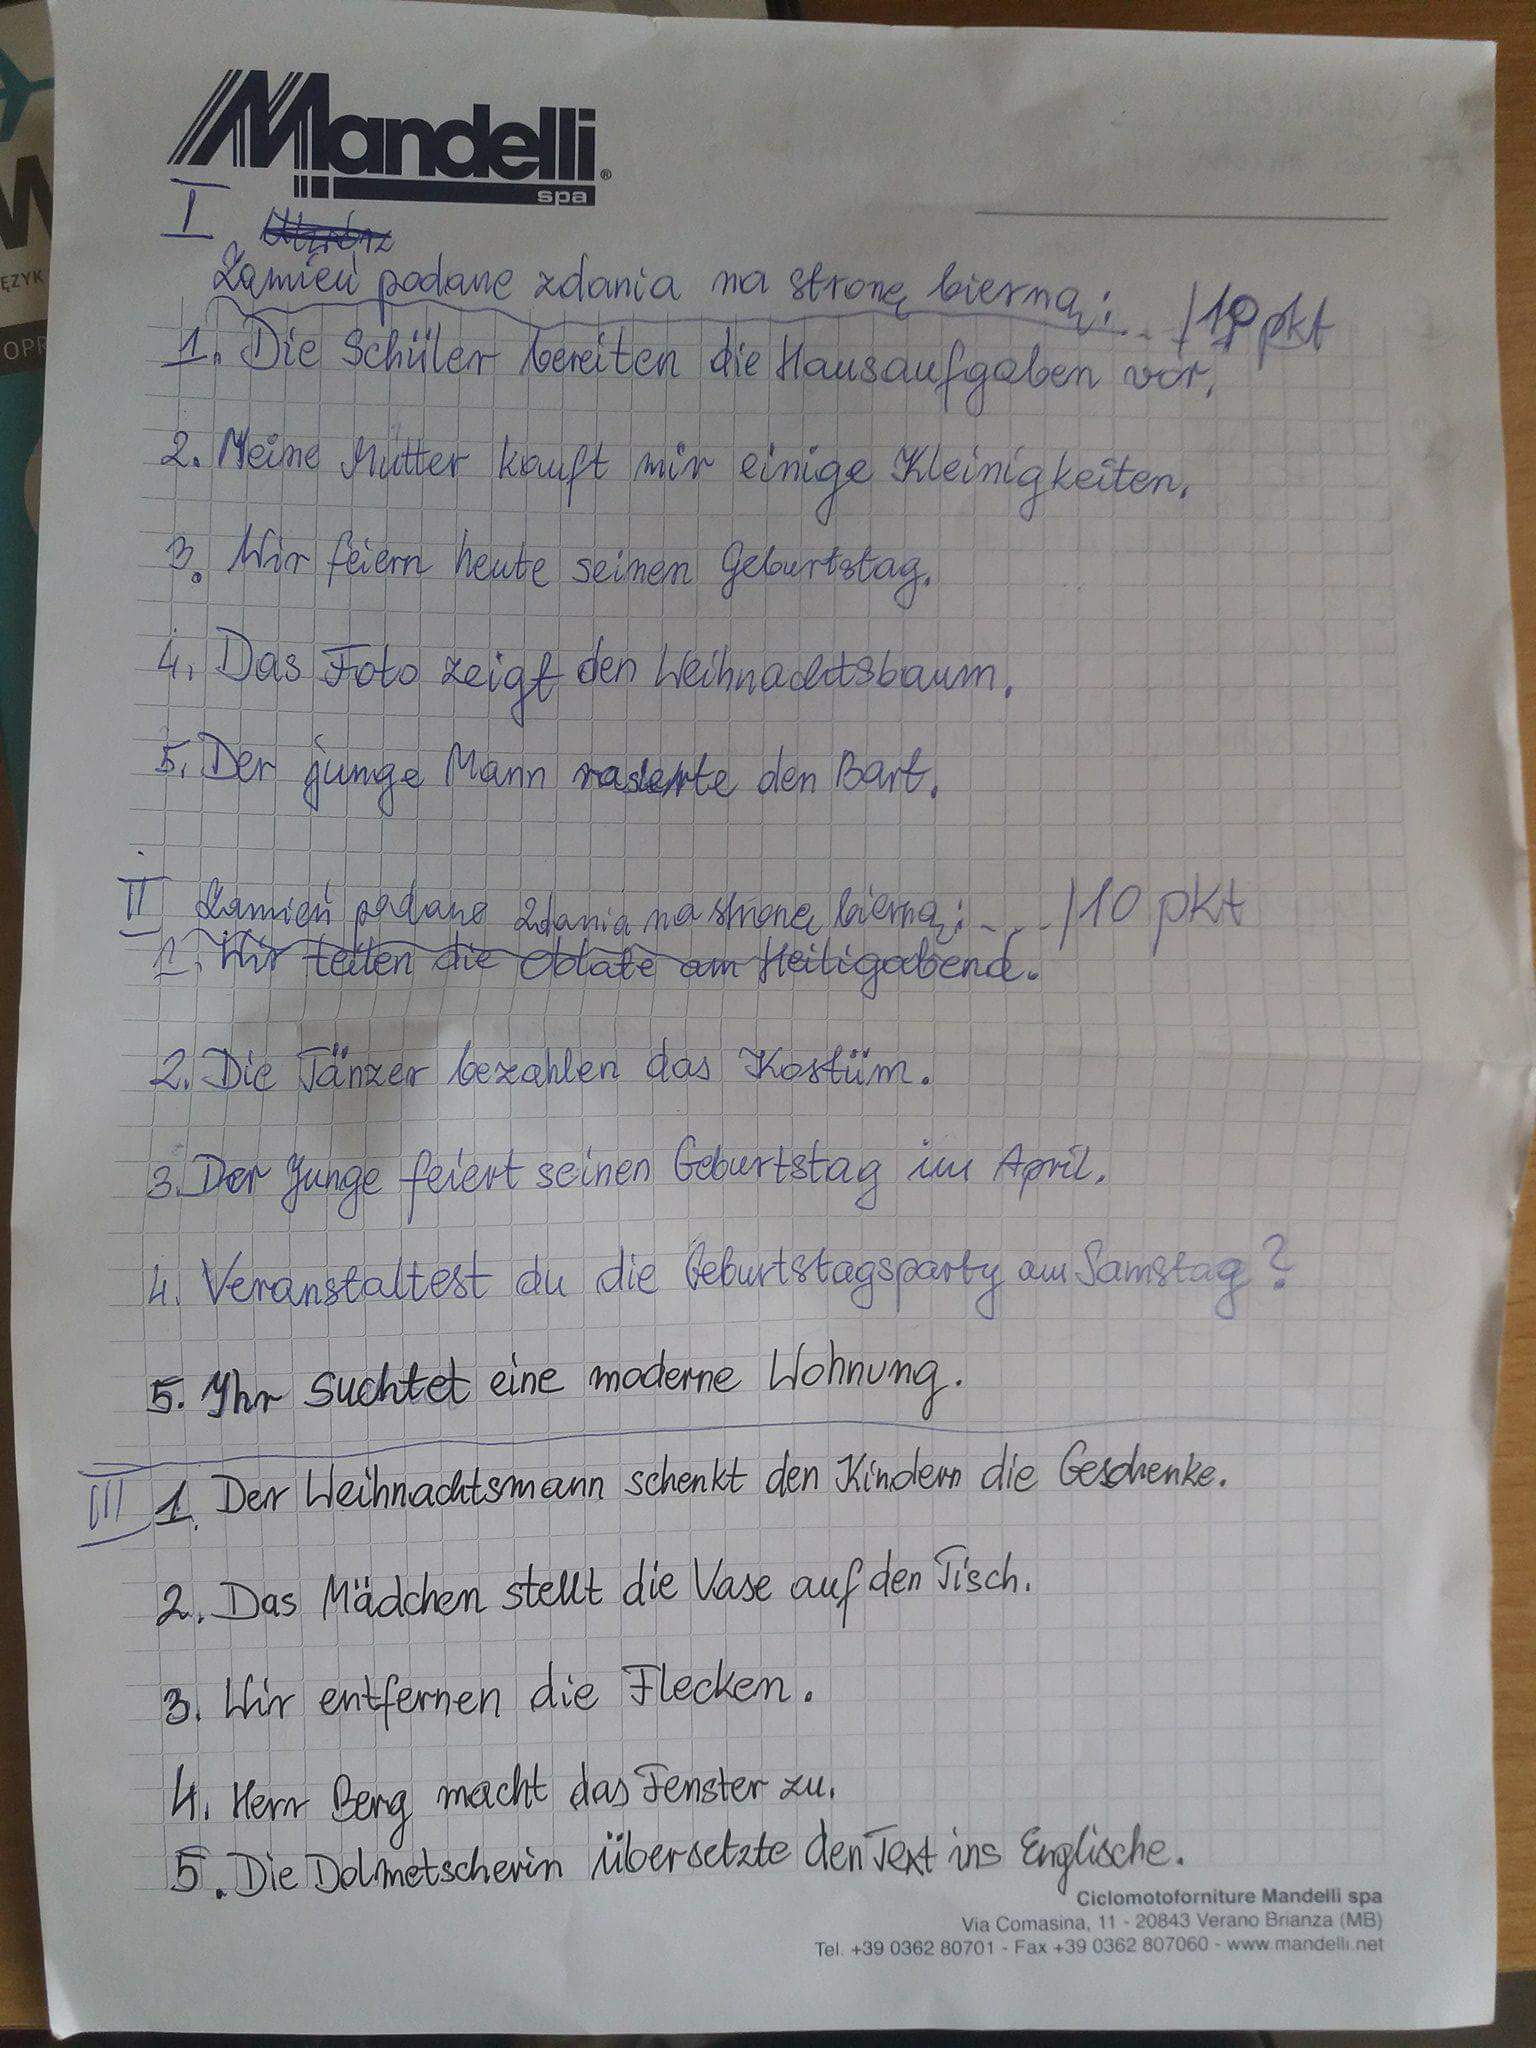 Mandelli®
spa
I
Zamień podane zdania na stronę bierną: .. /10 pkt
1. Die Schüler bereiten die Hausaufgaben vor.
2. Meine Mutter kauft mir einige Kleinigkeiten.
3. Wir feiern heute seinen Geburtstag.
4. Das Foto zeigt den Weihnachtsbaum.
5. Der junge Mann rasierte den Bart.
II Zamień podane zdania na stronę bierną: .... /10 pkt
1. Wir teilen die Oblate am Heiligabend.
2. Die Tänzer bezahlen das Kostüm.
3. Der Junge feiert seinen Geburtstag im April.
4. Veranstaltest du die Geburtstagsparty am Samstag?
5. Ihr suchtet eine moderne Wohnung.
III 1. Der Weihnachtsmann schenkt den Kindern die Geschenke.
2. Das Mädchen stellt die Vase auf den Tisch.
3. Wir entfernen die Flecken.
4. Herr Berg macht das Fenster zu.
5. Die Dolmetscherin übersetzte den Text ins Englische.
Ciclomotoforniture Mandelli spa
Via Comasina, 11 - 20843 Verano Brianza (MB)
Tel. +39 0362 80701 - Fax +39 0362 807060 - www.mandelli.net